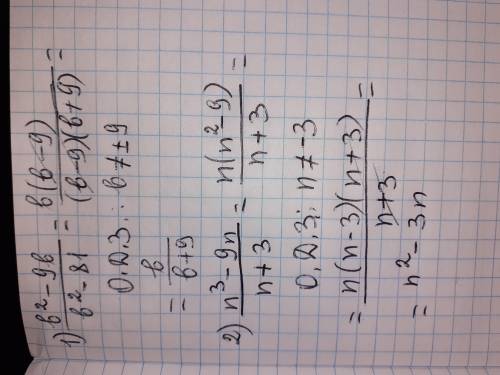 1) (b² - 9b)/(b² - 81) = b(b - 9)/((b - 9)(b + 9)) =
О.Д.З.: b ≠ ±9
= b/(b + 9)
2) (n³ - 9n)/(n + 3) = n(n² - 9)/(n + 3) =
О.Д.З.: n ≠ -3
= n(n - 3)(n + 3)/(n + 3) =
= n² - 3n